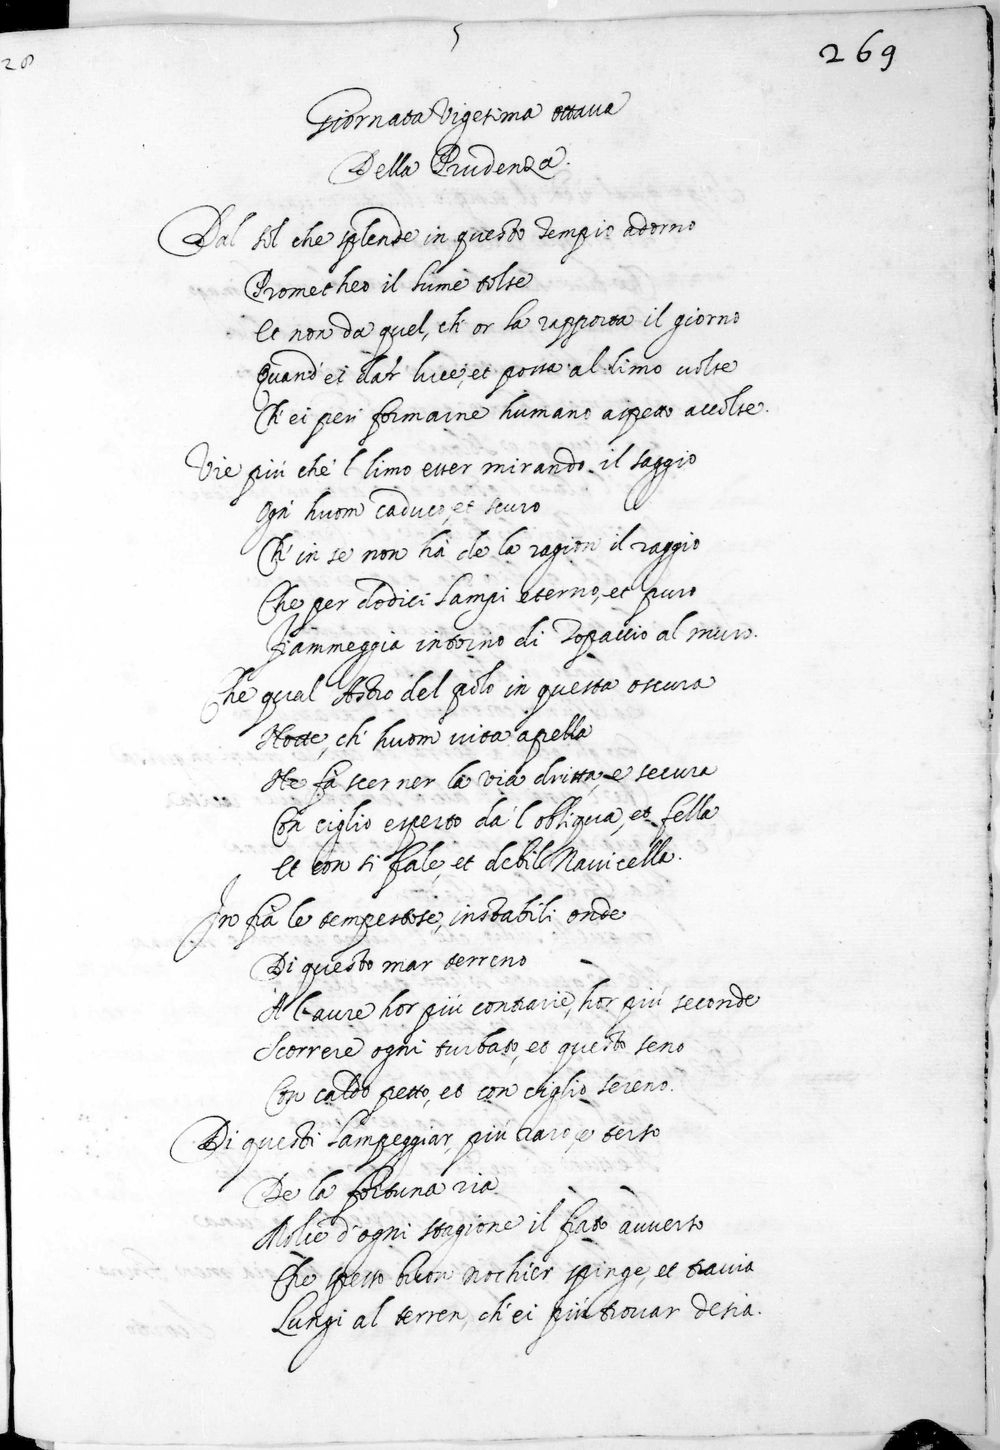 5
269
28
Giornata Vigesima ottaua
Della Prudenza.
Dal sol che splende in questo Tempio adorno
Prometheo il lume tolse
Et non da quel, ch' or la rapporta il giorno
Quand' ei dar luce, et possa al limo uolse
Ch' ei per formarne humano aspetto accolse.
Vie più che 'l limo esser mirando il saggio
Ogn' huom caduco, et scuro
Ch' in se non hà de la ragion il raggio
Che per dodici lampi eterno, et puro
Fiammeggia intorno di Topaccio al muro.
Che qual Astro del polo in questa oscura
Notte, ch' huom uita apella
Ne fà scerner la via dritta, e secura
Con ciglio esperto da 'l obliqua, et fella
Et con si frale, et debil Nauicella.
In frà le tempestose, instabili onde
Di questo mar terreno
A l'aure hor più contrarie, hor più seconde
Scorrere ogni turbato, et questo seno
Con caldo petto, et con ciglio sereno.
Di questi lampeggiar, più raro, e terso
De la fortuna ria
Molce d'ogni stagione il fiato auuerso
Che spesso buon nochier spinge, et trauia
Lungi al terren, ch' ei più trouar desia.